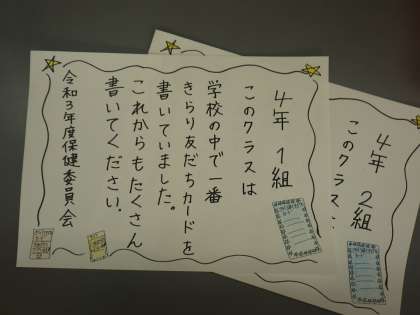 4年 1組
このクラスは
学校の中で一番
きらり友だちカードを
書いていました。
これからもたくさん
書いてください。
令和3年度保健委員会
4年 2組
このクラスは